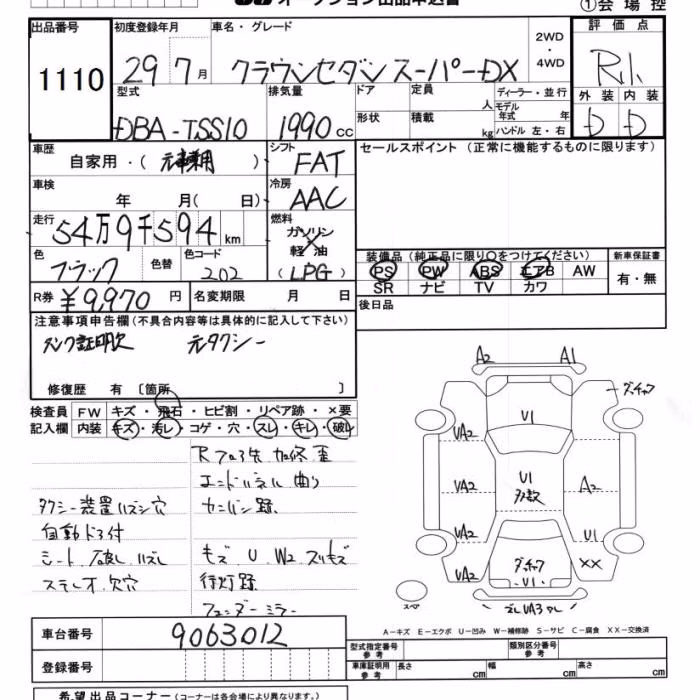 オークション出品申込書
①会場控
出品番号
1110
初度登録年月
29年7月
車名・グレード
クラウンセダンスーパーDX
2WD
・
4WD
評価点
R1.
外装 内装
D D
型式
DBA-TSS10
排気量
1990cc
ドア
定員
人
形状
積載
kg
ディーラー・並行
モデル年式
年
ハンドル 左・右
車歴
自家用・( )
シフト
FAT
セールスポイント(正常に機能するものに限ります)
車検
年 月( 日)
冷房
AAC
走行
54万9千594km
燃料
ガソリン
軽油
(LPG)
色
ブラック
色替
色コード
202
装備品(純正品に限り○をつけてください)
PS PW ABS エアB AW
SR ナビ TV カワ
新車保証書
有・無
R券
¥9,970円
名変期限
月 日
後日品
注意事項申告欄(不具合内容等は具体的に記入して下さい)
元タクシー
修復歴 有〔箇所 〕
検査員
記入欄
FW キズ・飛石・ヒビ割・リペア跡・×要
内装 キズ・汚レ・コゲ・穴・スレ・キレ・破レ
エンドパネル曲り
タクシー装置ハズシ穴
自動ドア付
シート破レ
ステレオ欠穴
キズ U W2 スリキズ
行灯跡
フェンダーミラー
A2 A1
U1
UA2
UA2
U1
多数
A2
UA2
U1
UA2
XX
U1
スペア
A-キズ E-エクボ U-凹み W-補修跡 S-サビ C-腐食 XX-交換済
車台番号
9063012
登録番号
型式指定番号
参考
類別区分番号
参考
車庫証明用
参考
長さ cm 幅 cm 高さ cm
希望出品コーナー(コーナーは各会場により異なります。)